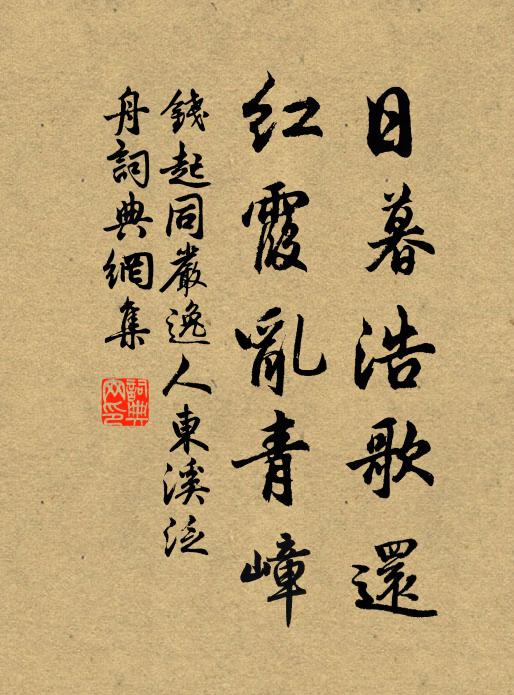 日暮浩歌還
紅霞亂青嶂
錢起同嚴逸人東溪泛
舟詞典網集